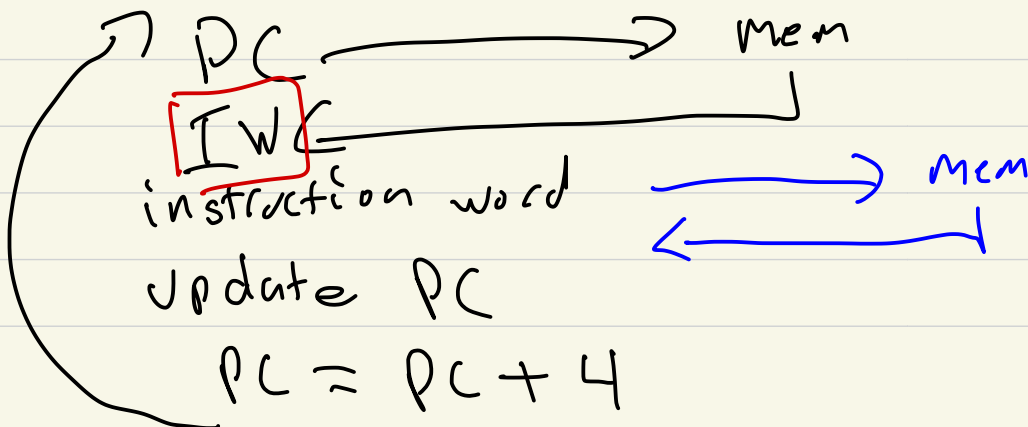 PC mem
IW
instruction word mem
update PC
PC = PC + 4